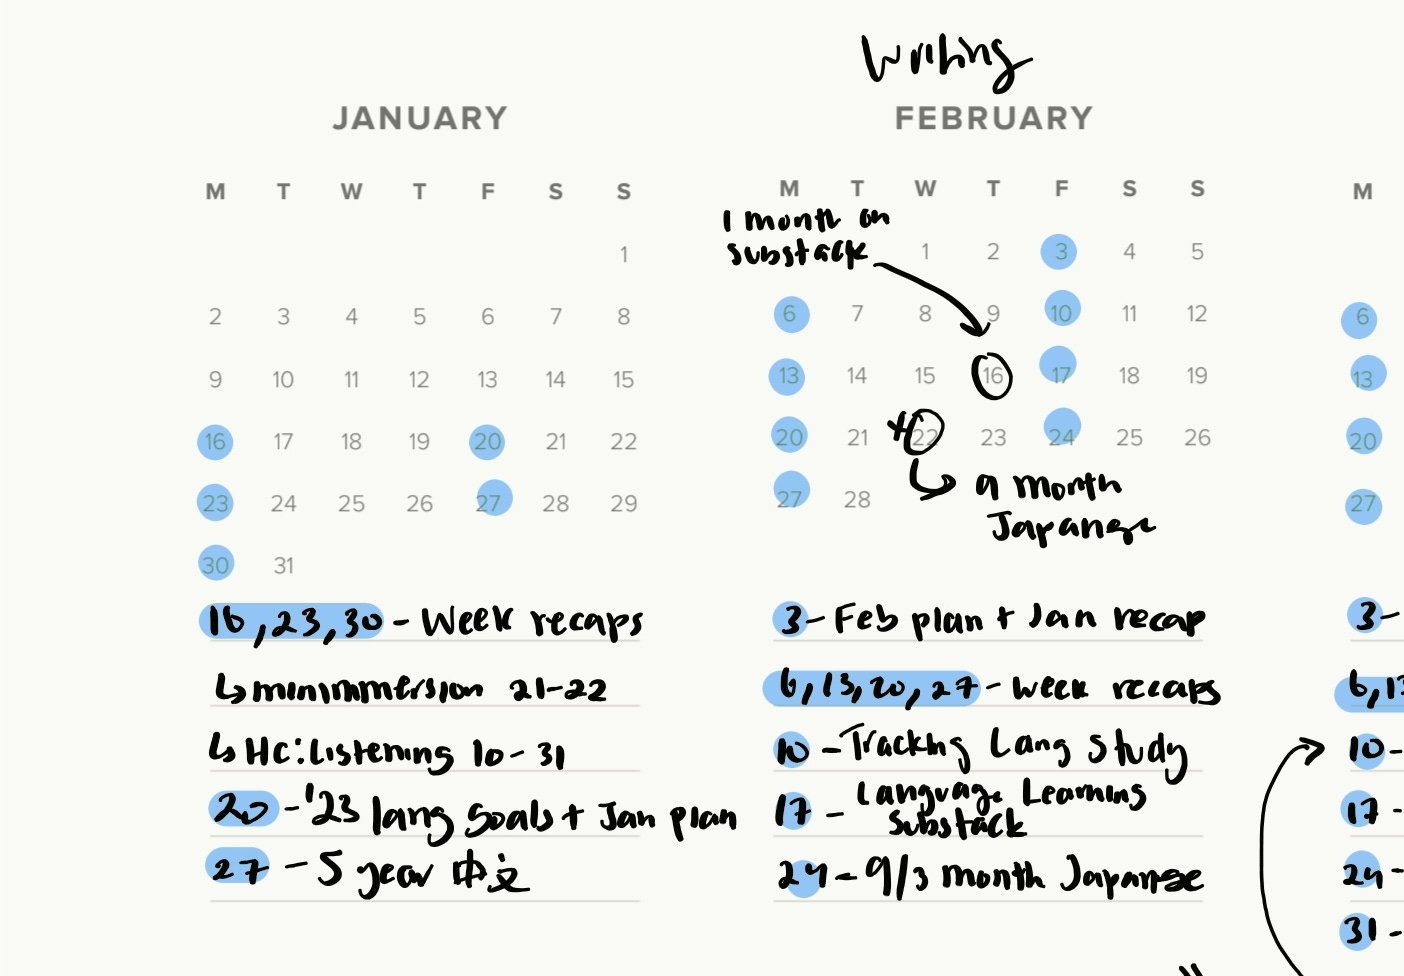 Writing
JANUARY
M T W T F S S
1
2 3 4 5 6 7 8
9 10 11 12 13 14 15
16 17 18 19 20 21 22
23 24 25 26 27 28 29
30 31
16, 23, 30 - Week recaps
↳ minimmersion 21-22
↳ HC: Listening 10-31
20 - '23 lang goals + Jan plan
27 - 5 year 中文
FEBRUARY
M T W T F S S
1 month on
substack
1 2 3 4 5
6 7 8 9 10 11 12
13 14 15 16 17 18 19
20 21 22 23 24 25 26
27 28
9 month
Japanese
3 - Feb plan + Jan recap
6, 13, 20, 27 - Week recaps
10 - Tracking Lang Study
17 - Language Learning
Substack
24 - 9/3 month Japanese
M
6
13
20
27
3 -
6, 13
10 -
17 -
24 -
31 -